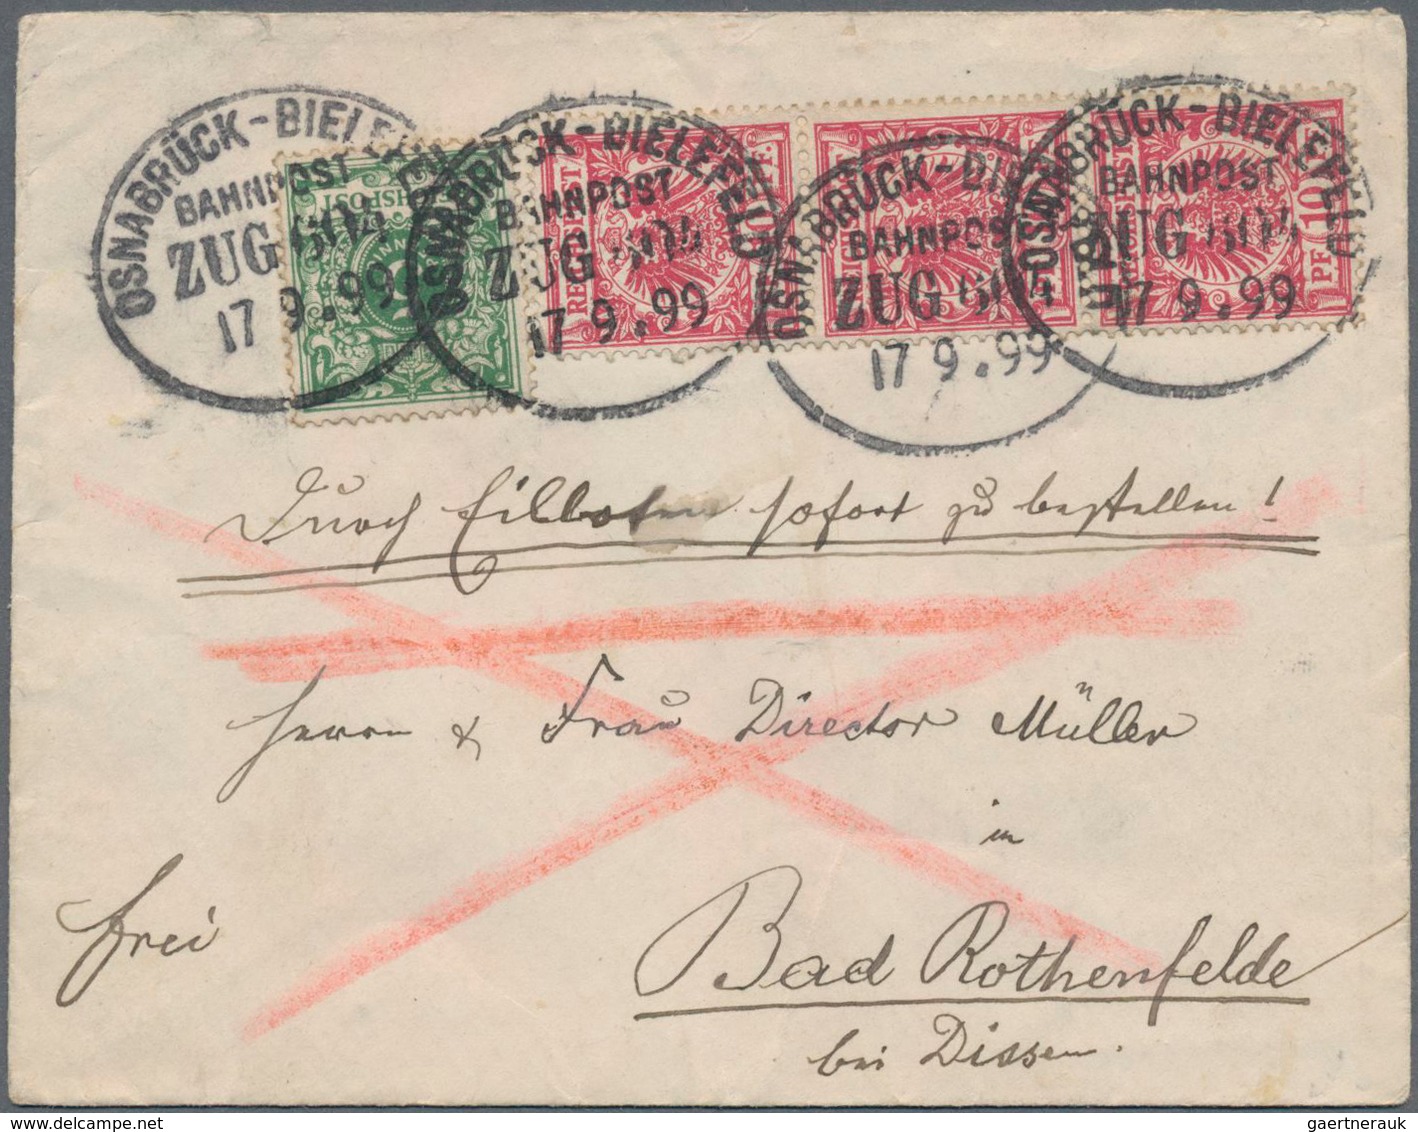 OSNABRÜCK-BIELEFELD
BAHNPOST
ZUG 604
17 9.99
OSNABRÜCK-BIELEFELD
BAHNPOST
ZUG 604
17 9.99
OSNABRÜCK-BIELEFELD
BAHNPOST
ZUG 604
17 9.99
OSNABRÜCK-BIELEFELD
BAHNPOST
ZUG 604
17 9.99
REICHSPOST
5
10 PF.
10 PF.
Durch Eilboten sofort zu bestellen!
Herrn & Frau Director Müller
in
Bad Rothenfelde
bei Dissen.
frei
gaertnerauk